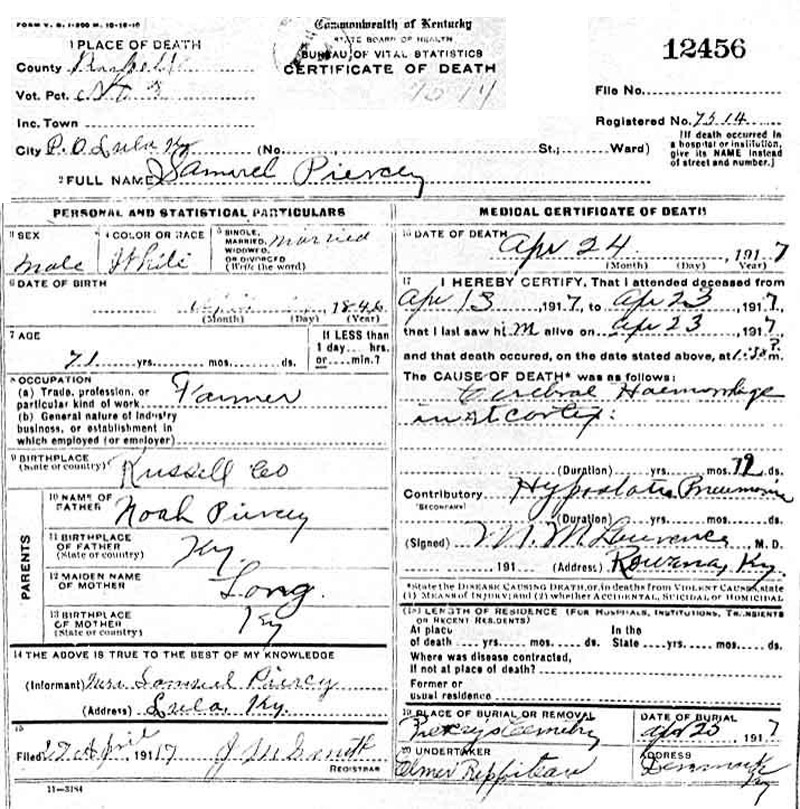 FORM V. S. 1-200 M. 10-10-10
Commonwealth of Kentucky
STATE BOARD OF HEALTH
BUREAU OF VITAL STATISTICS
CERTIFICATE OF DEATH
12456
1 PLACE OF DEATH
County Russell
Vot. Pct. No 3
Inc. Town
City P.O Lula Ky (No. , St.; Ward)
File No.
Registered No. 7514
[If death occurred in a hospital or institution, give its NAME instead of street and number.]
7514
2 FULL NAME Samuel Piercey
PERSONAL AND STATISTICAL PARTICULARS
3 SEX
Male
4 COLOR OR RACE
White
5 SINGLE, MARRIED, WIDOWED, OR DIVORCED (Write the word)
Married
6 DATE OF BIRTH
, 1846
(Month) (Day) (Year)
7 AGE
71 yrs. mos. ds.
If LESS than 1 day.... hrs. or.... min.?
8 OCCUPATION
(a) Trade, profession, or particular kind of work Farmer
(b) General nature of industry business, or establishment in which employed (or employer)
9 BIRTHPLACE (State or country) Russell Co
PARENTS
10 NAME OF FATHER Noah Piercey
11 BIRTHPLACE OF FATHER (State or country) Ky.
12 MAIDEN NAME OF MOTHER Long.
13 BIRTHPLACE OF MOTHER (State or country) Ky
14 THE ABOVE IS TRUE TO THE BEST OF MY KNOWLEDGE
(Informant) Mrs. Samuel Piercy
(Address) Lula, Ky.
15
Filed 27 April 19117 J M Smith
REGISTRAR
11-3184
MEDICAL CERTIFICATE OF DEATH
16 DATE OF DEATH Apr 24, 1917
(Month) (Day) (Year)
17 I HEREBY CERTIFY, That I attended deceased from
Apr 13, 1917, to Apr 23, 1917,
that I last saw him alive on Apr 23, 1917,
and that death occured, on the date stated above, at P. m.
The CAUSE OF DEATH* was as follows:
Cerebral Haemorrhage
in cortex:
(Duration) yrs. mos. ds.
Contributory Hypostatic Pneumonia
(SECONDARY)
(Duration) yrs. mos. ds.
(Signed) M. M Lawrence M. D.
, 191 (Address) Rowena, Ky.
*State the DISEASE CAUSING DEATH, or, in deaths from VIOLENT CAUSES, state (1) MEANS OF INJURY; and (2) whether ACCIDENTAL, SUICIDAL OR HOMICIDAL
(18) LENGTH OF RESIDENCE (FOR HOSPITALS, INSTITUTIONS, TRANSIENTS OR RECENT RESIDENTS)
At place of death.... yrs.... mos.... ds. In the State.... yrs.... mos.... ds.
Where was disease contracted, if not at place of death?
Former or usual residence
19 PLACE OF BURIAL OR REMOVAL
Cemetery
DATE OF BURIAL
Apr 25 1917
20 UNDERTAKER
Elmer
ADDRESS
Ky